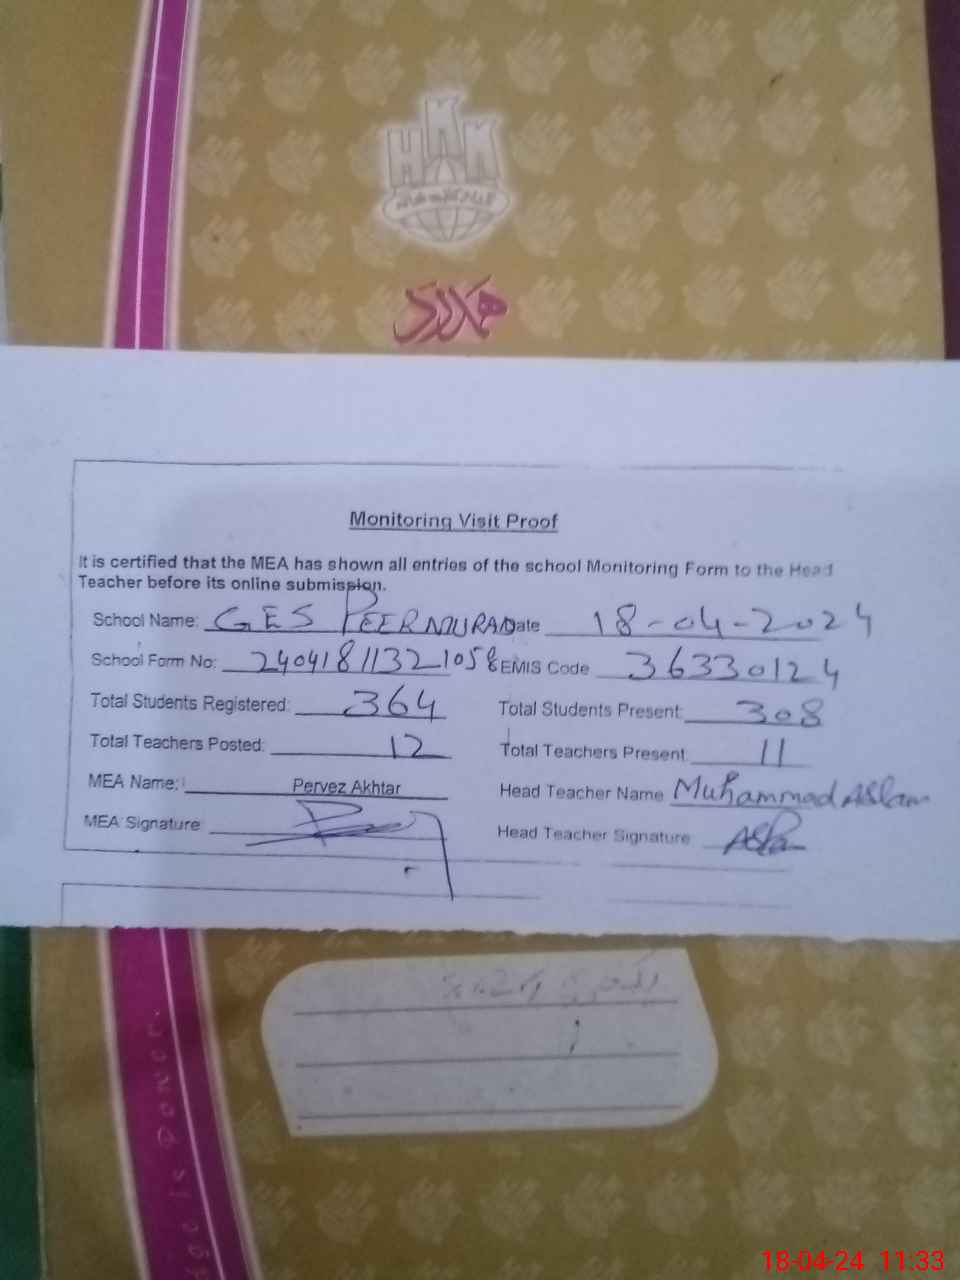 HKK
ہمدرد
Monitoring Visit Proof
It is certified that the MEA has shown all entries of the school Monitoring Form to the Head
Teacher before its online submission.
School Name: GES PEER MURAD Date 18-04-2024
School Form No: 24041811321058 EMIS Code 36330124
Total Students Registered: 364 Total Students Present: 308
Total Teachers Posted: 12 Total Teachers Present: 11
MEA Name: Pervez Akhtar Head Teacher Name Muhammad Aslam
MEA Signature Head Teacher Signature Aslam
18-04-24 11:33